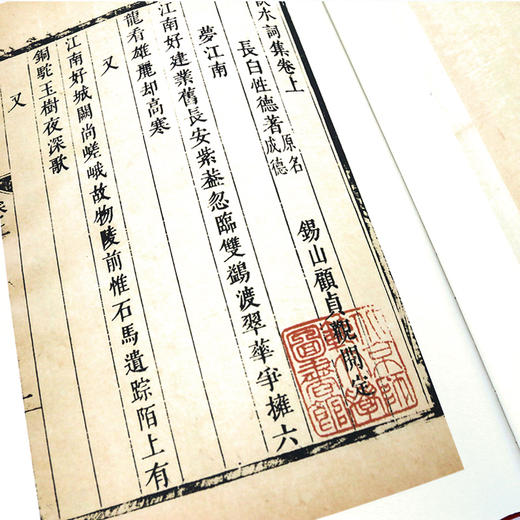 水詞集卷上
長白性德著原名成德
錫山顧貞觀閱定
夢江南
江南好建業舊長安紫葢忽臨雙鷁渡翠華爭擁六
龍看雄麗却高寒
又
江南好城闕尚嵯峨故物陵前惟石馬遺踪陌上有
銅駝玉樹夜深歌
又